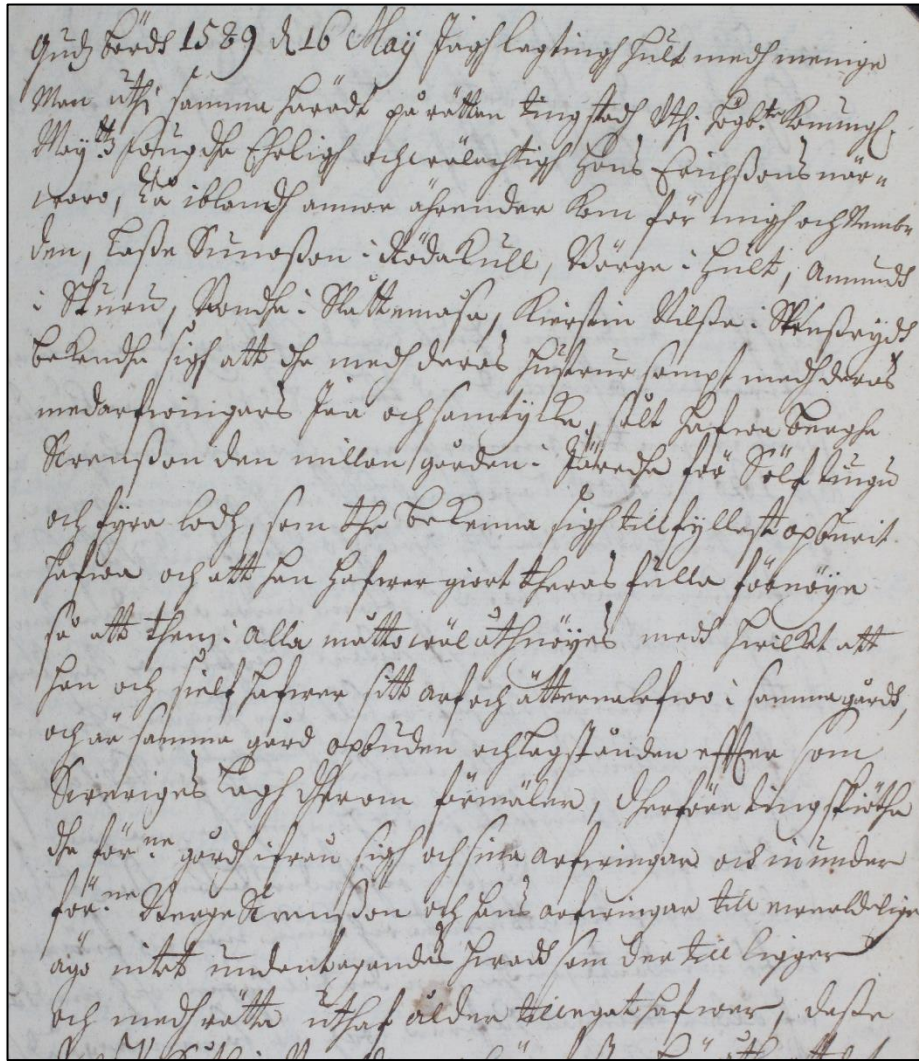 Gudz bördh 1589 d 16 Maÿ Jagh lagtingh hult medh menige
Man uthj samma häradt på rätten tingstadh Uthi högb:te Konungh:
Maÿ:ttz fougdhe Ehrligh och wälachtigh Hans Erichßons när„
waro, Tå iblandh annor ährender kom för migh och Nembn
den, Laße Sunoßon i Rödakull, Börge i hult, Amundt
i Skuru, Bondhe i Slättemåsa, Kierstin Nilße i
bekendhe sigh att dhe medh deras hustrur sampt medh deras
medarfwingars Jaa och samtÿcke, sålt hafwa berghe
Swenßon den millan gården i för Sölf tiugu
och fÿra lodh, som the bekenna sigh till fÿllest opburit
hafwa och att han hafwer giort theras fulla förnöye
så att them i alla måtto wäl åthnöyes medh hwilket att
han och sielf hafwer sitt arf och ätterna i samma gårdt,
och är samma gård opbuden och lagstånden effter som
Sweriges Lagh dherom förmäler, dherföre tingskiöthe
dhe för:ne gårdh ifrån sigh och sina arfwingar och inunder
för:ne Berge Swenßon och hans arfwingar till ewerdlige
ägo intet undentagandes hwadt som der till ligger
och medh rätta uthaf ålder tillegat hafwer, deße